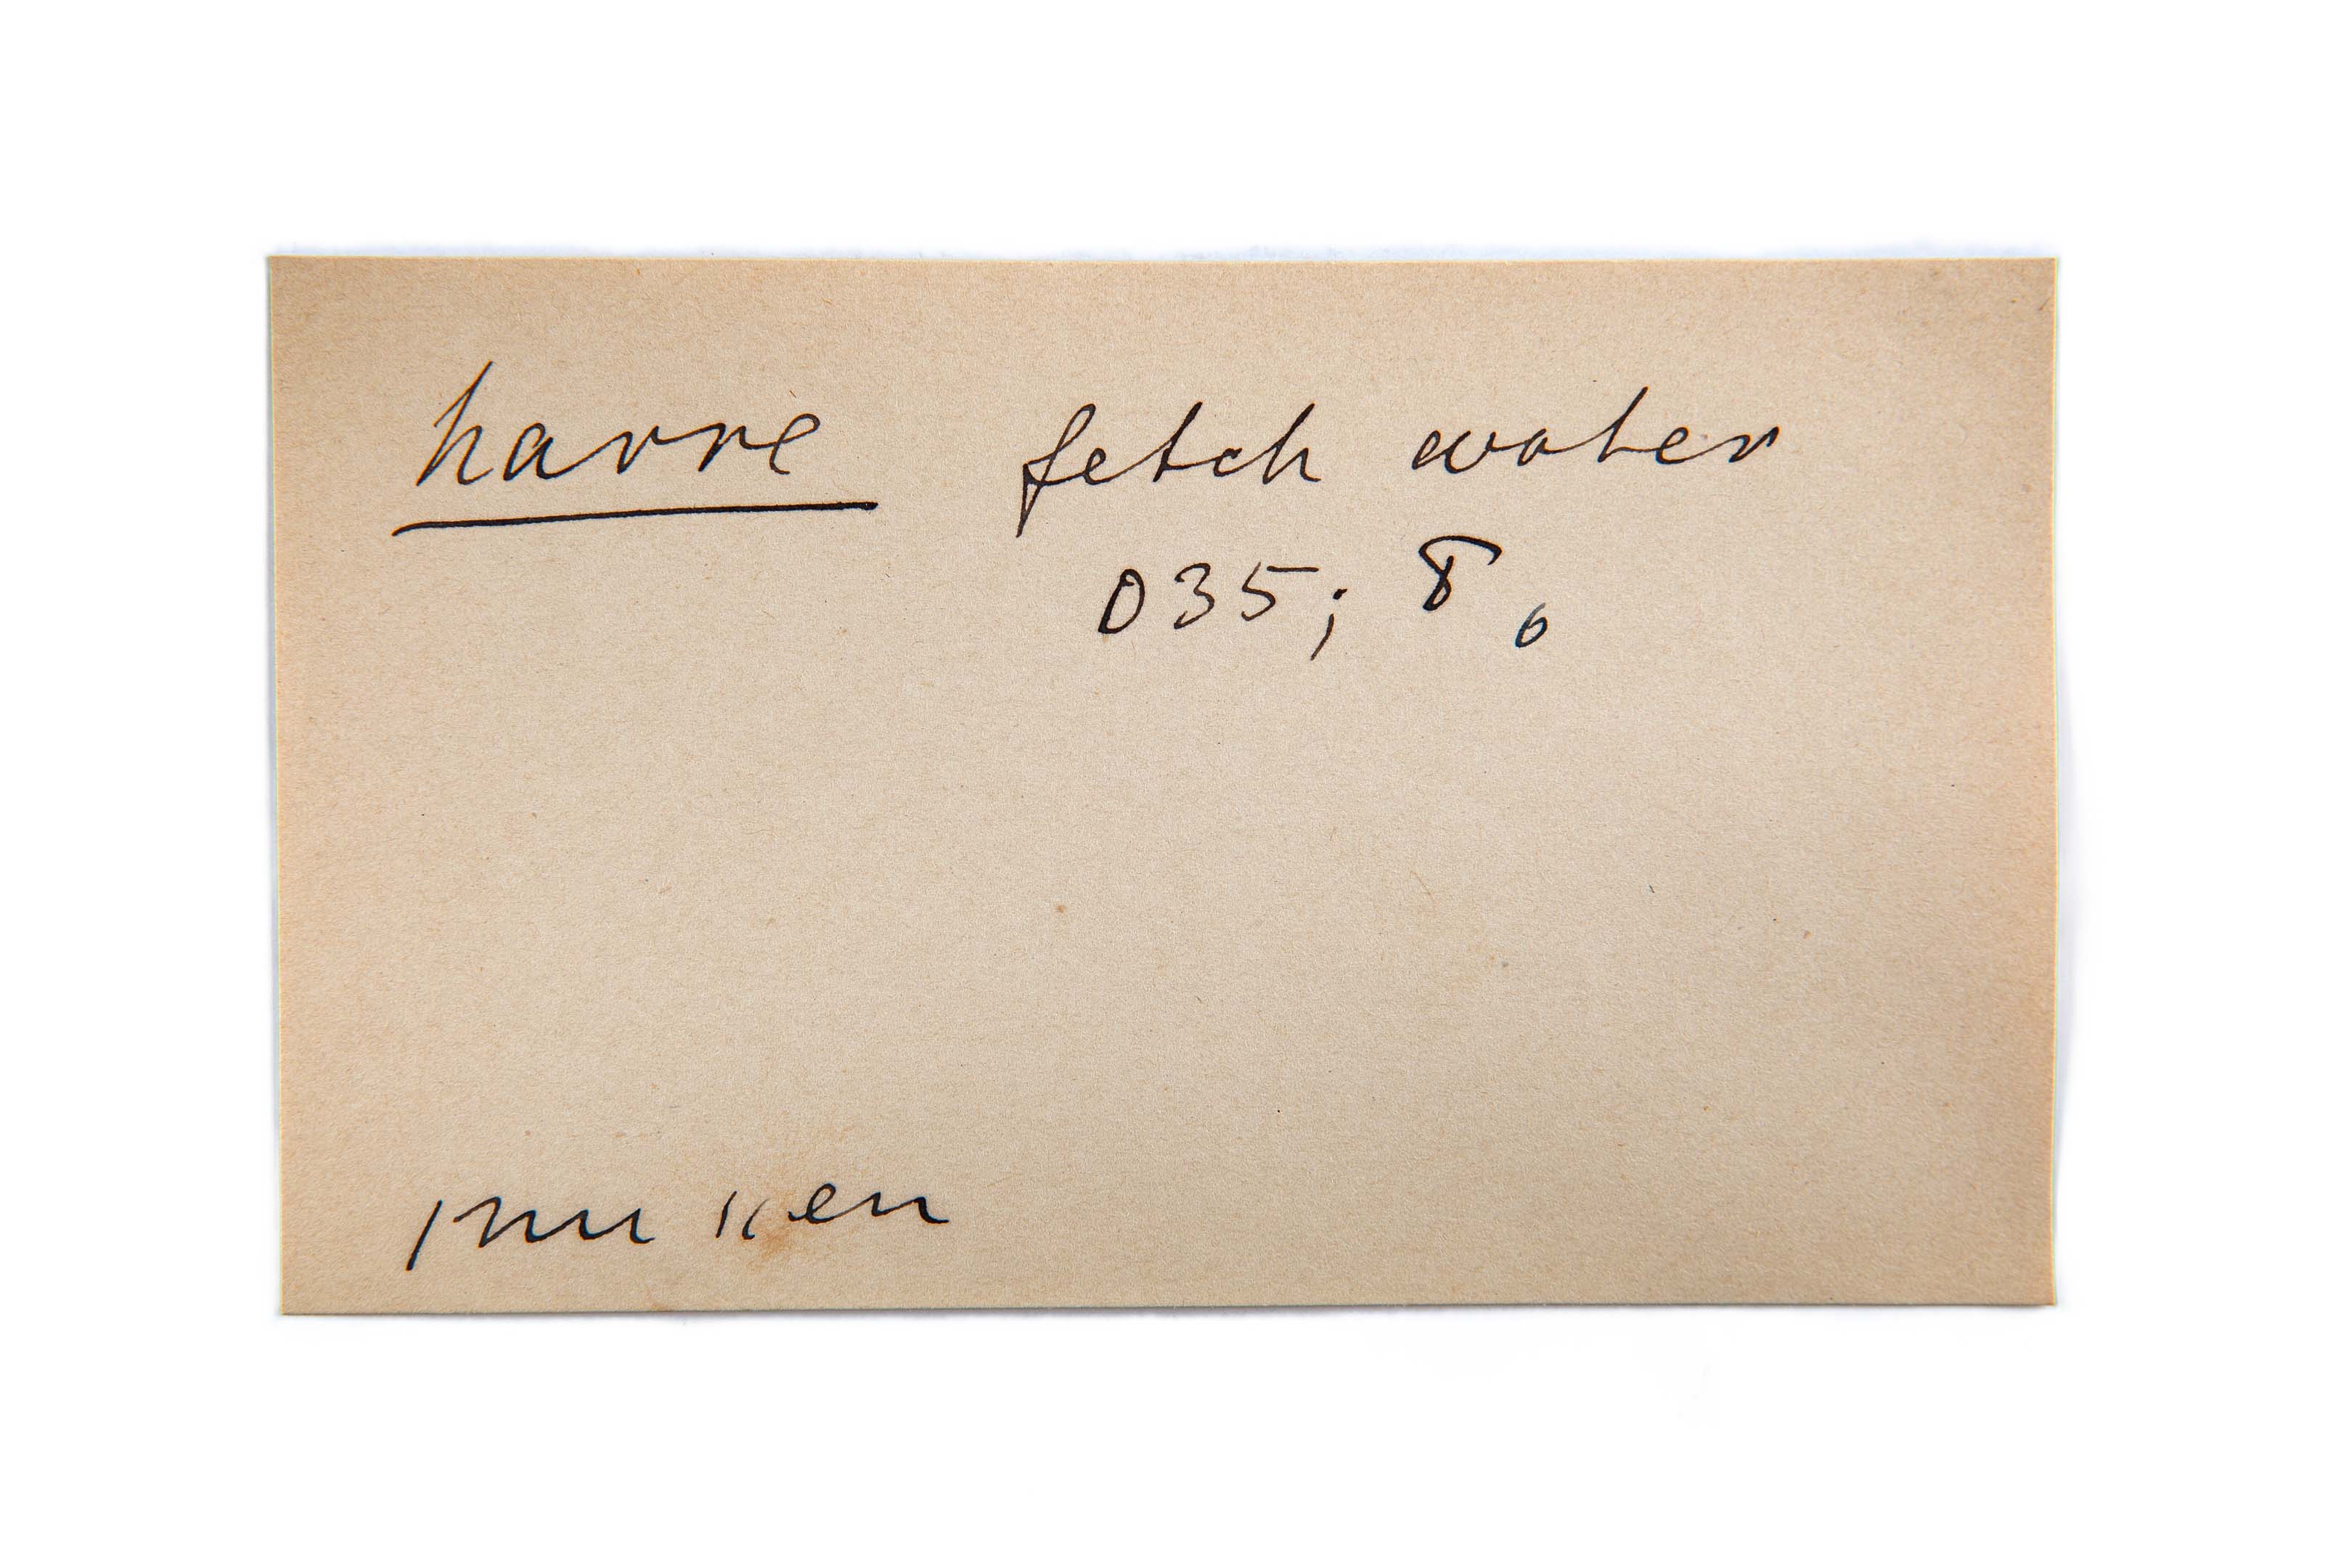 harre fetch water
035; 8 6